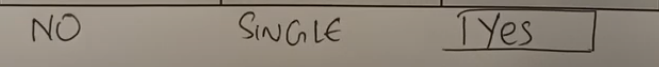 NO SINGLE 1 Yes